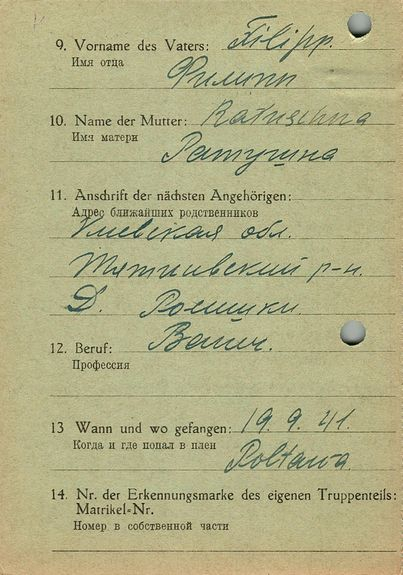 9. Vorname des Vaters: Filipp.
Имя отца
Филипп
10. Name der Mutter: Ratuschna
Имя матери
Ратушна
11. Anschrift der nächsten Angehörigen:
Адрес ближайших родственников
Киевская обл.
р-н.
Д.
12. Beruf:
Профессия
13 Wann und wo gefangen: 19. 9. 41.
Когда и где попал в плен
Poltawa.
14. Nr. der Erkennungsmarke des eigenen Truppenteils:
Matrikel-Nr.
Номер в собственной части